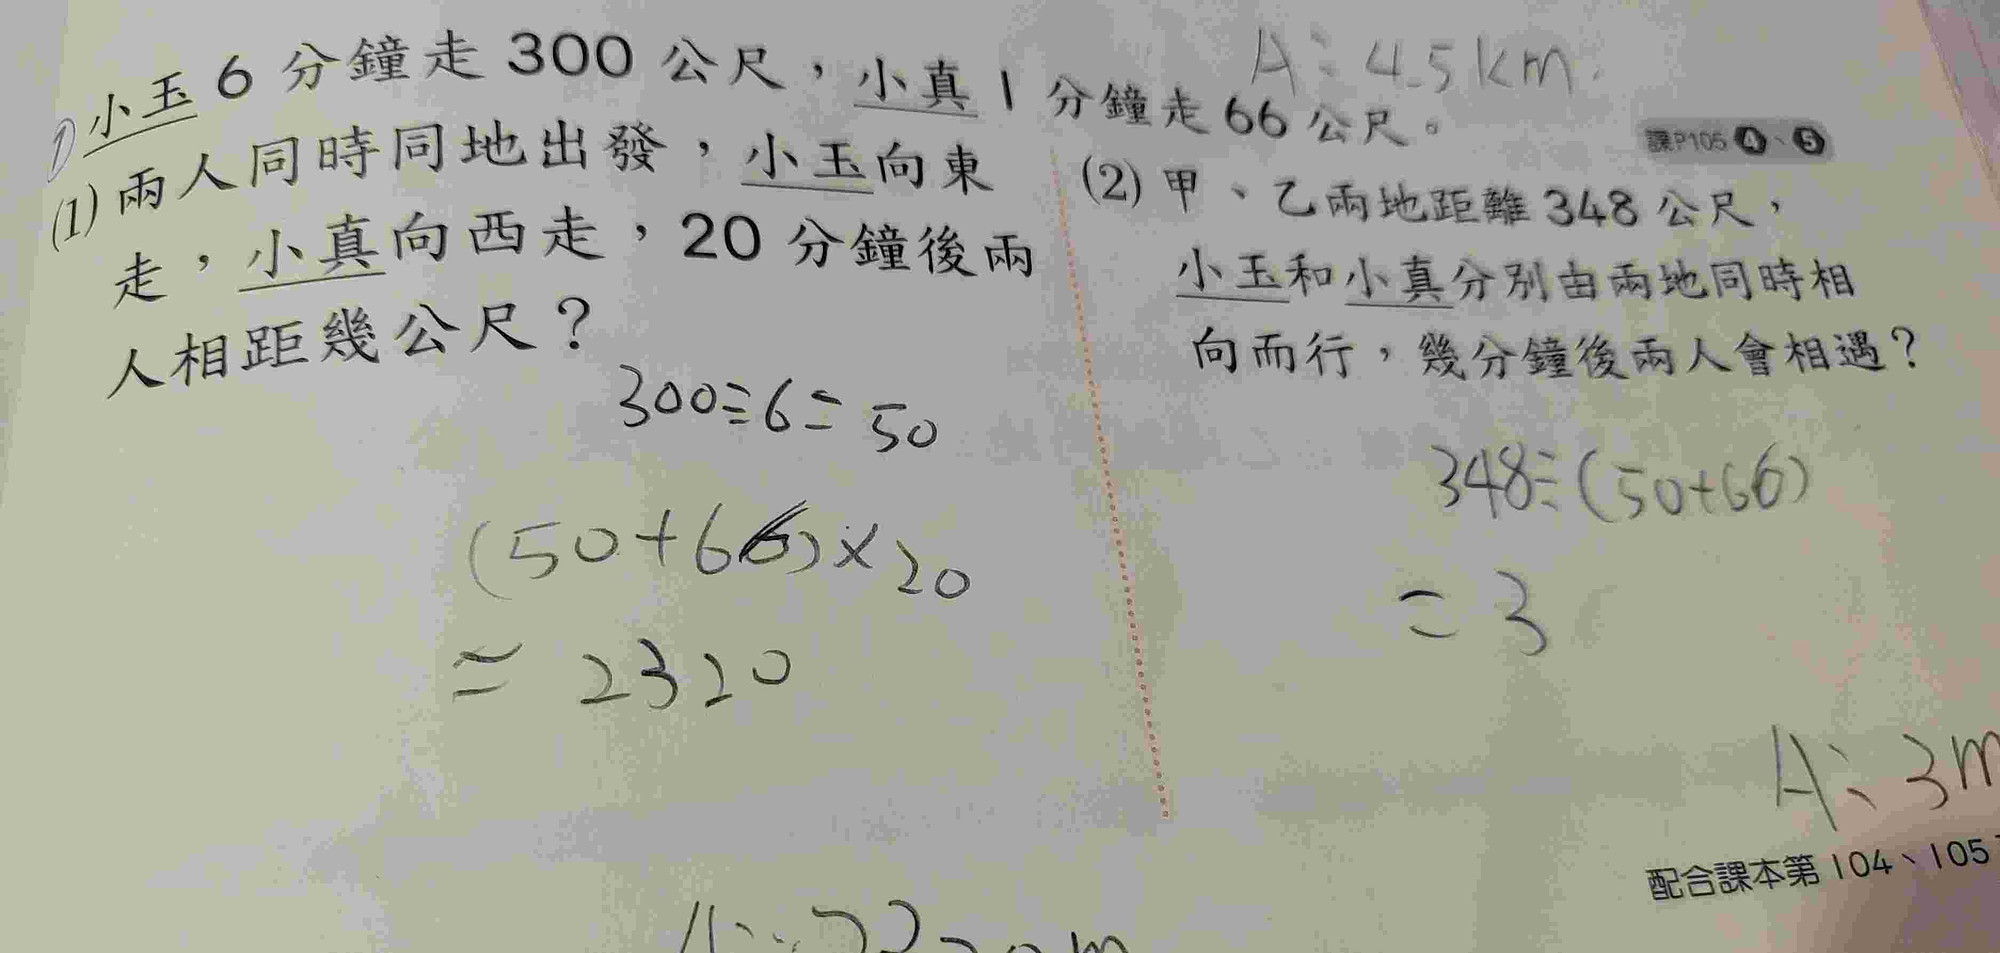 A：4.5km.
① 小玉 6 分鐘走 300 公尺，小真 1 分鐘走 66 公尺。
課P105 ❹、❺
(1) 兩人同時同地出發，小玉向東
走，小真向西走，20 分鐘後兩
人相距幾公尺？
300÷6=50
(50+66)×20
=2320
(2) 甲、乙兩地距離 348 公尺，
小玉和小真分別由兩地同時相
向而行，幾分鐘後兩人會相遇？
348÷(50+66)
=3
A：3m
配合課本第 104、105